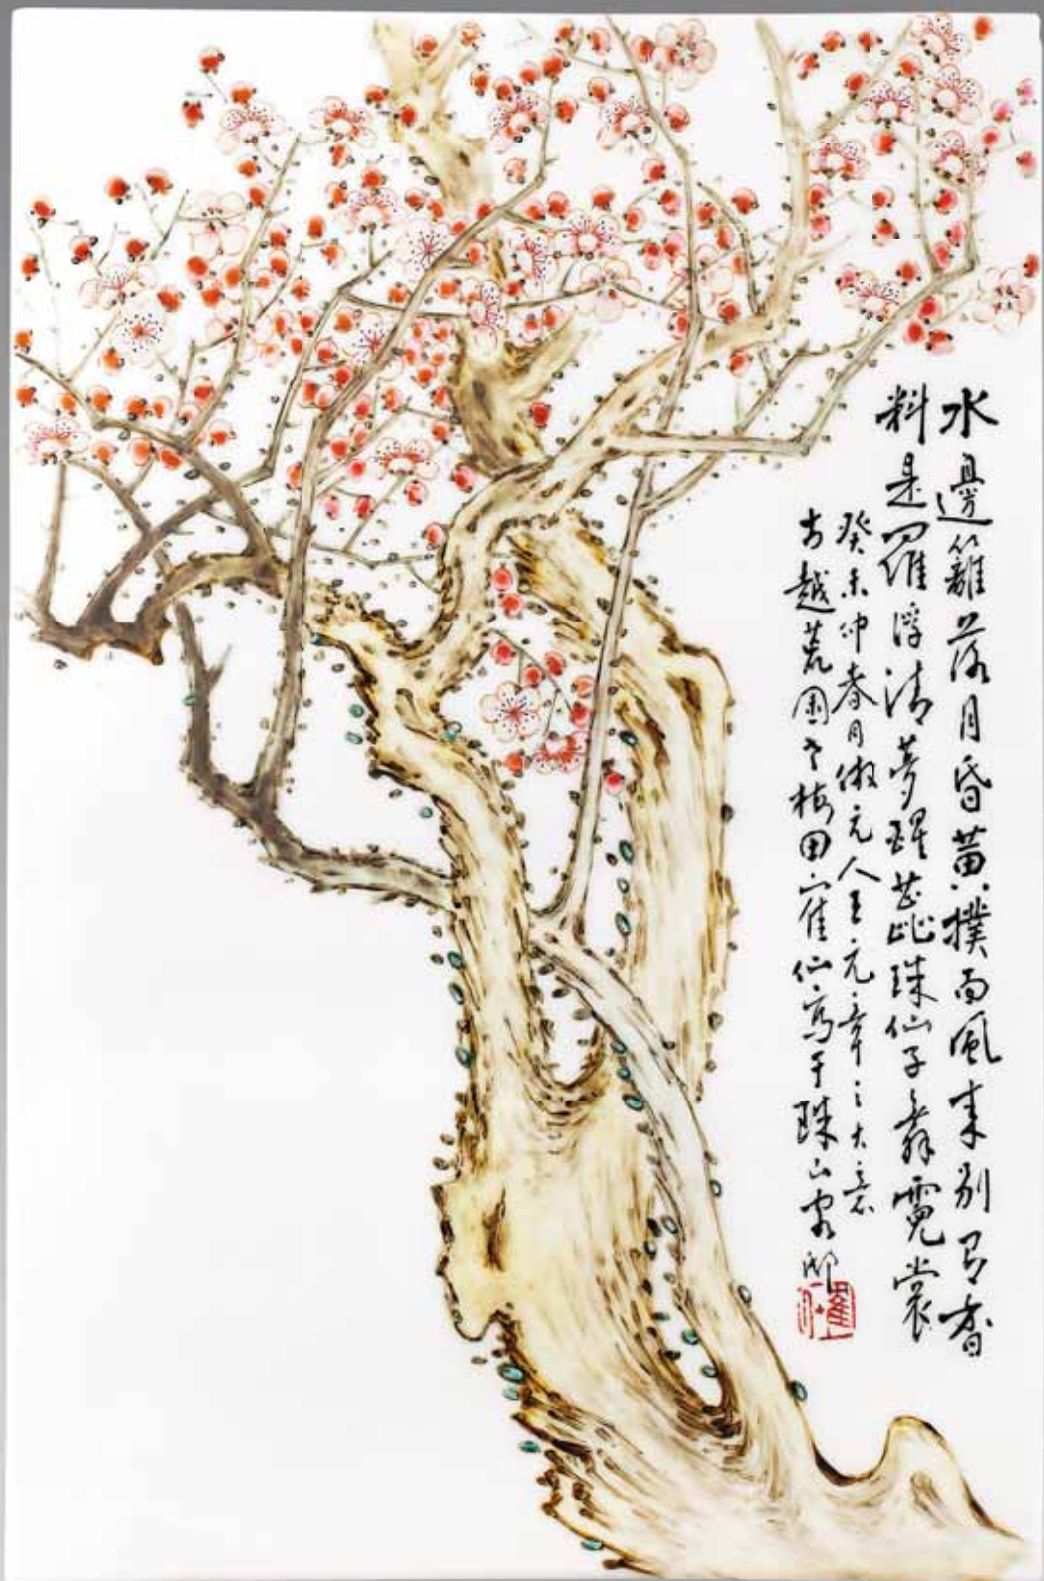 水邊籬落月昏黃撲面風來別有香
料是羅浮清夢醒蕊珠仙子舞霓裳
癸未仲春月倣元人王元章之大意
古越荒園老梅田隺仙寫于珠山客邸